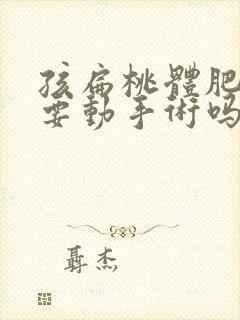 孩扁桃體肥
要動手術吗
聶杰